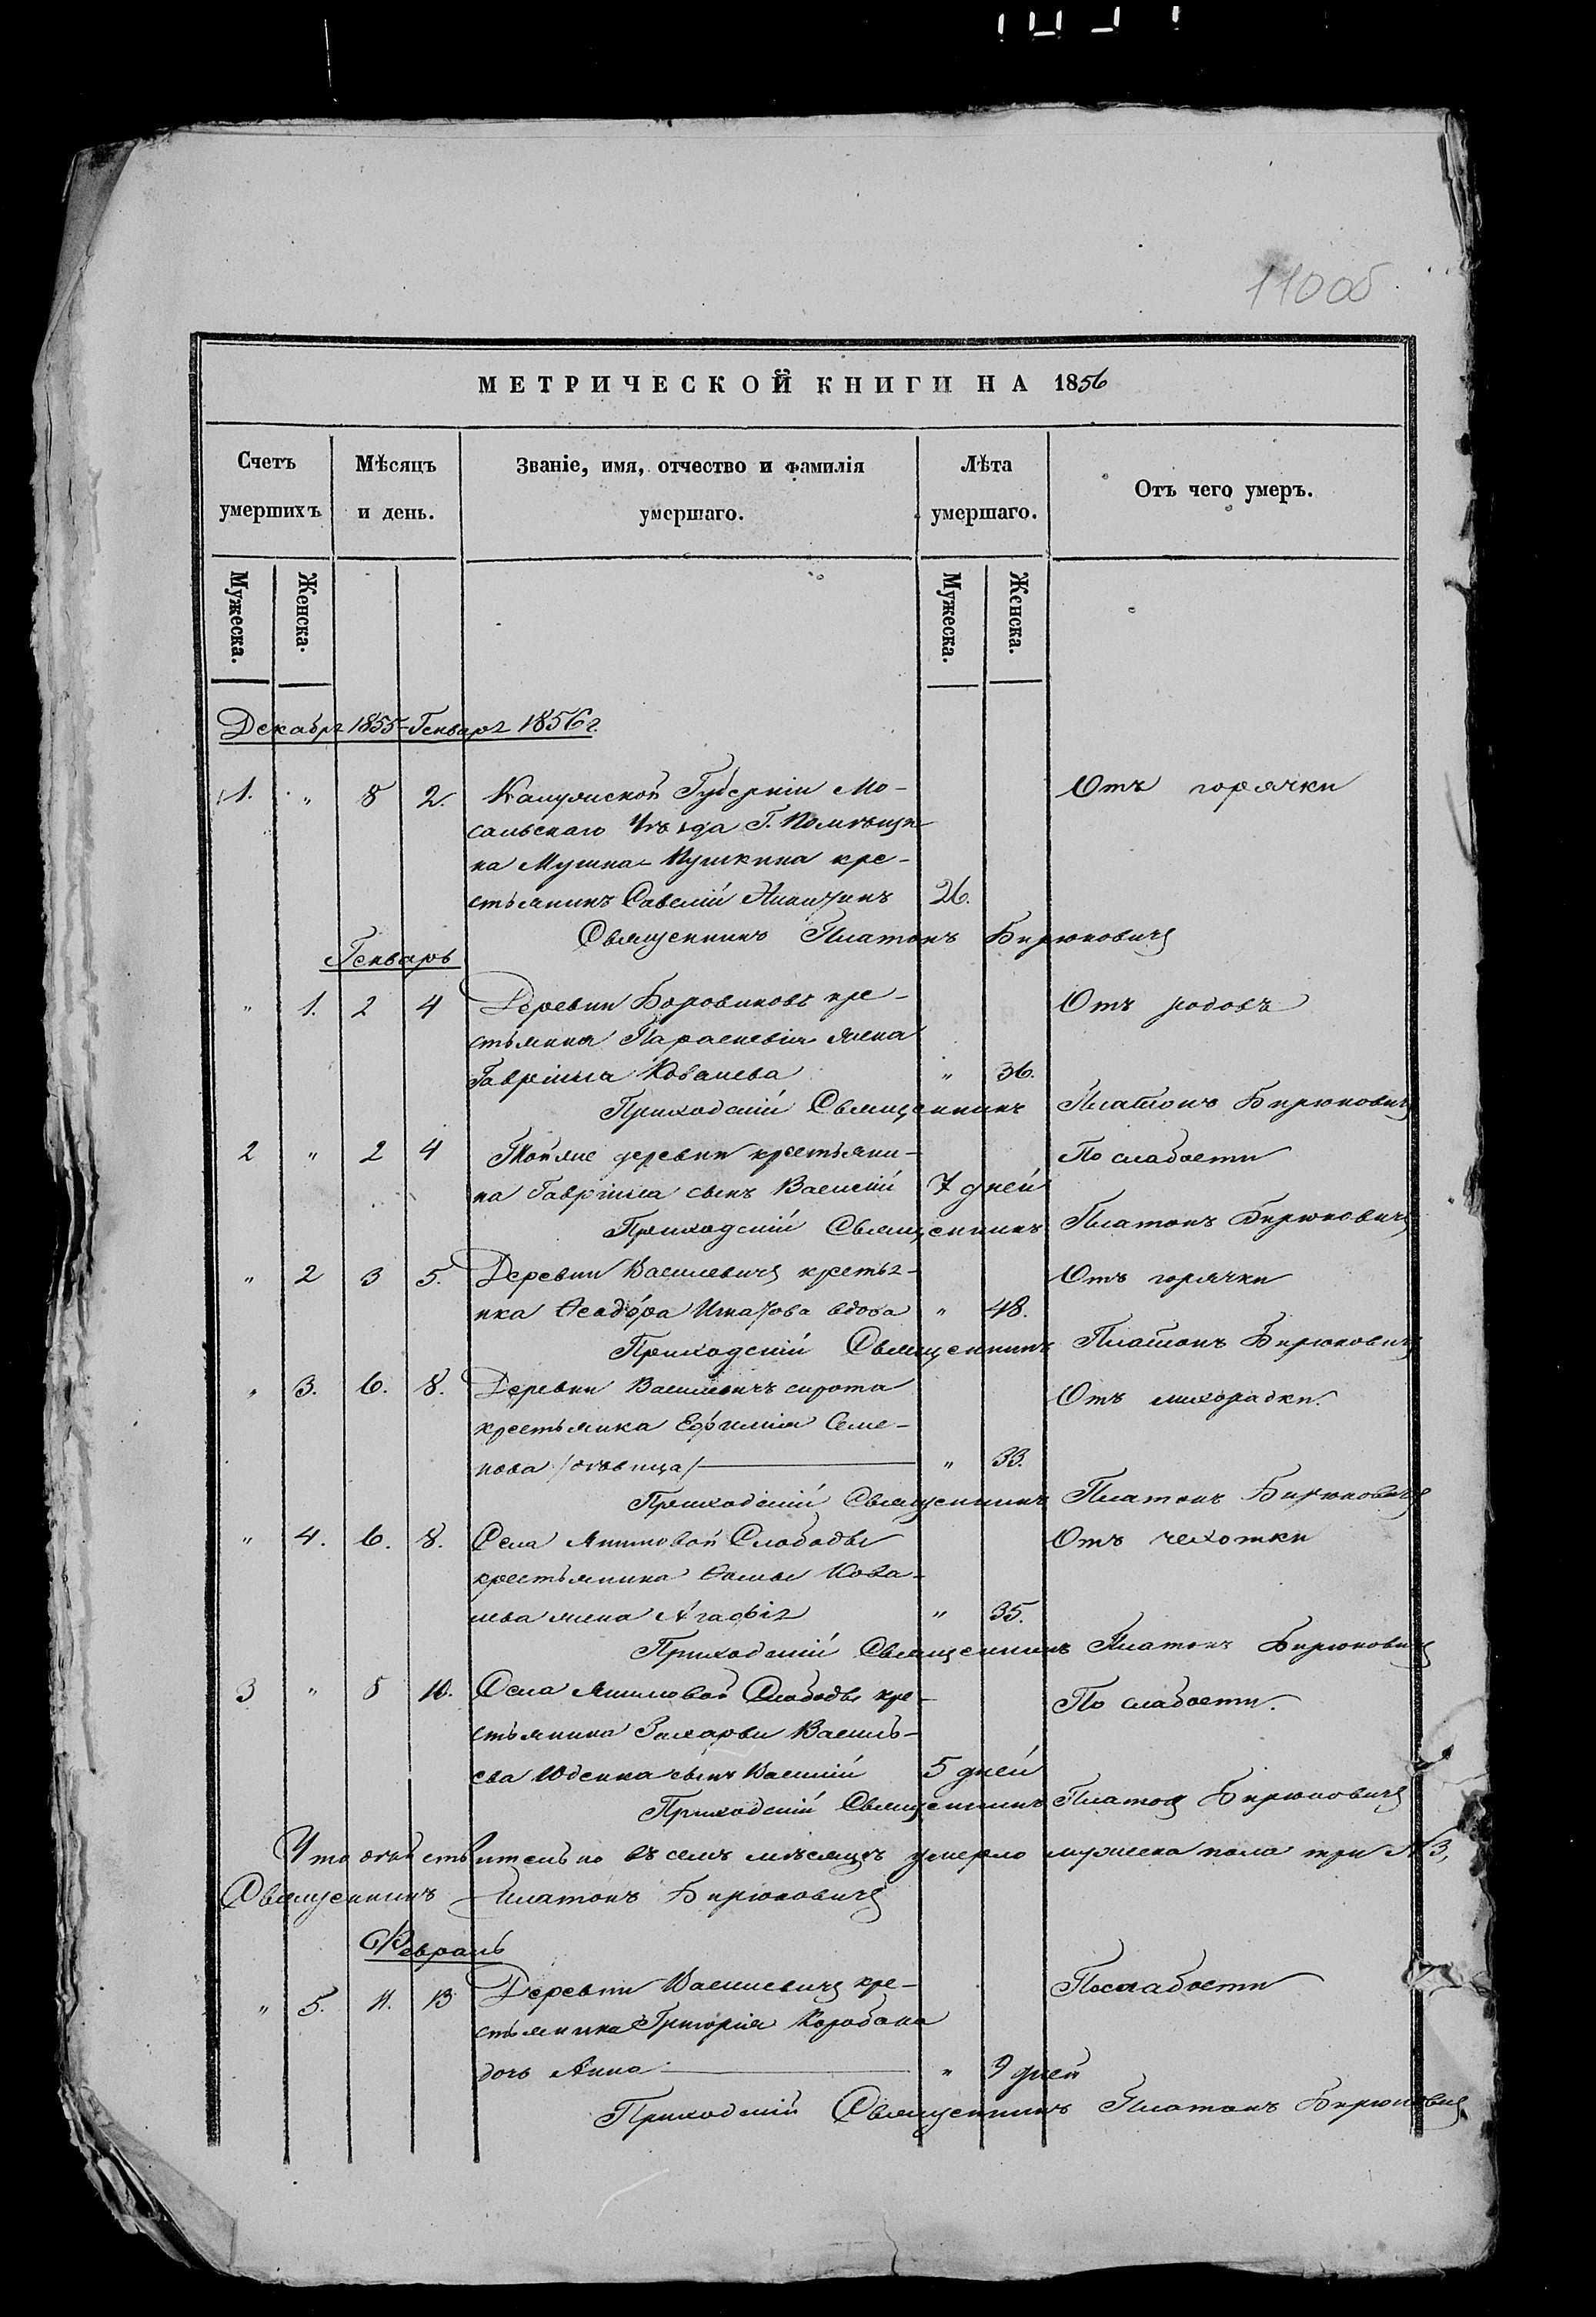 110об
МЕТРИЧЕСКОЙ КНИГИ НА 1856
Счетъ умершихъ Мѣсяцъ и день. Званіе, имя, отчество и фамилія умершаго. Лѣта умершаго. Отъ чего умеръ.
Мужеска. Женска. Мужеска. Женска.
Декабрь 1855 - Генварь 1856 г.
1. " 8 2. Калужской Губерніи Мо- Отъ горячки
сальскаго Уѣзда Г. Помѣщи-
ка Мусина-Пушкина кре-
стьянинъ Савелій Никитинъ 26.
Священникъ Платонъ Бирюковичъ
Генварь
" 1. 2 4 Деревни Боровиковъ кре- Отъ родовъ
стьянка Параскевія жена
Гавріила Ковалева " 36.
Приходскій Священникъ Платонъ Бирюковичъ
2 " 2 4 Той же деревни крестьяни- По слабости
на Гавріила сынъ Василій 7 дней
Приходскій Священникъ Платонъ Бирюковичъ
" 2 3 5. Деревни Василевичъ крестья- Отъ горячки
нка Ѳеадора Игнатова вдова " 48.
Приходскій Священникъ Платонъ Бирюковичъ
" 3. 6. 8. Деревни Василевичъ сирота Отъ лихорадки.
крестьянка Ефимія Семе-
нова /дѣвица/ " 33.
Приходскій Священникъ Платонъ Бирюковичъ
" 4. 6. 8. Села Якимовой Слободы Отъ чехотки
крестьянина Ѳомы Кова-
лева жена Агафія " 35.
Приходскій Священникъ Платонъ Бирюковичъ
3 " 8 10. Села Якимовой Слободы кре- По слабости.
стьянина Захарьи Василь-
ева Юденка сынъ Василій 5 дней
Приходскій Священникъ Платонъ Бирюковичъ
Что дѣйствительно въ семъ мѣсяцѣ умерло мужеска пола три № 3,
Священникъ Платонъ Бирюковичъ
Февраль
" 5. 11. 13 Деревни Василевичъ кре- По слабости
стьянина Григорія Коробана
дочь Анна " 9 дней
Приходскій Священникъ Платонъ Бирюковичъ